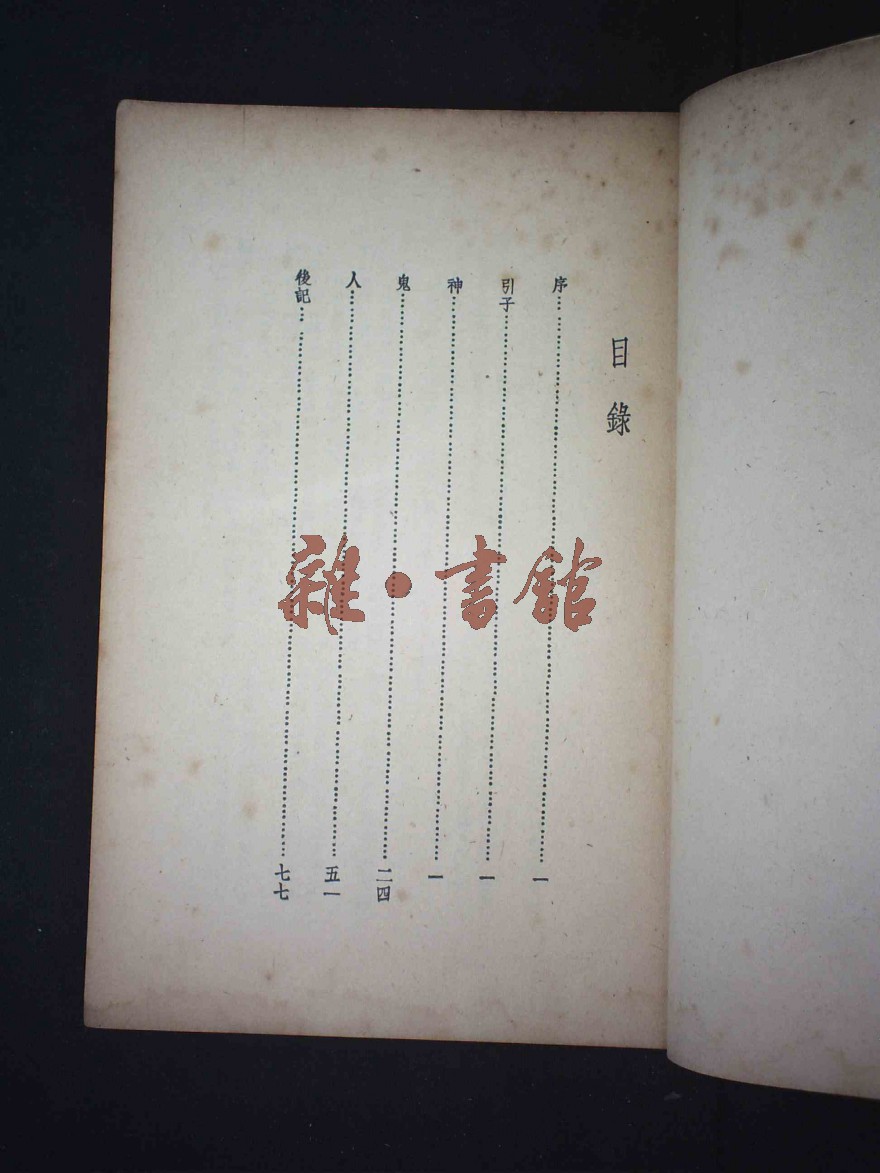 目錄
序……一
引子……一
神……一
鬼……二四
人……五一
後記……七七
雜·書館